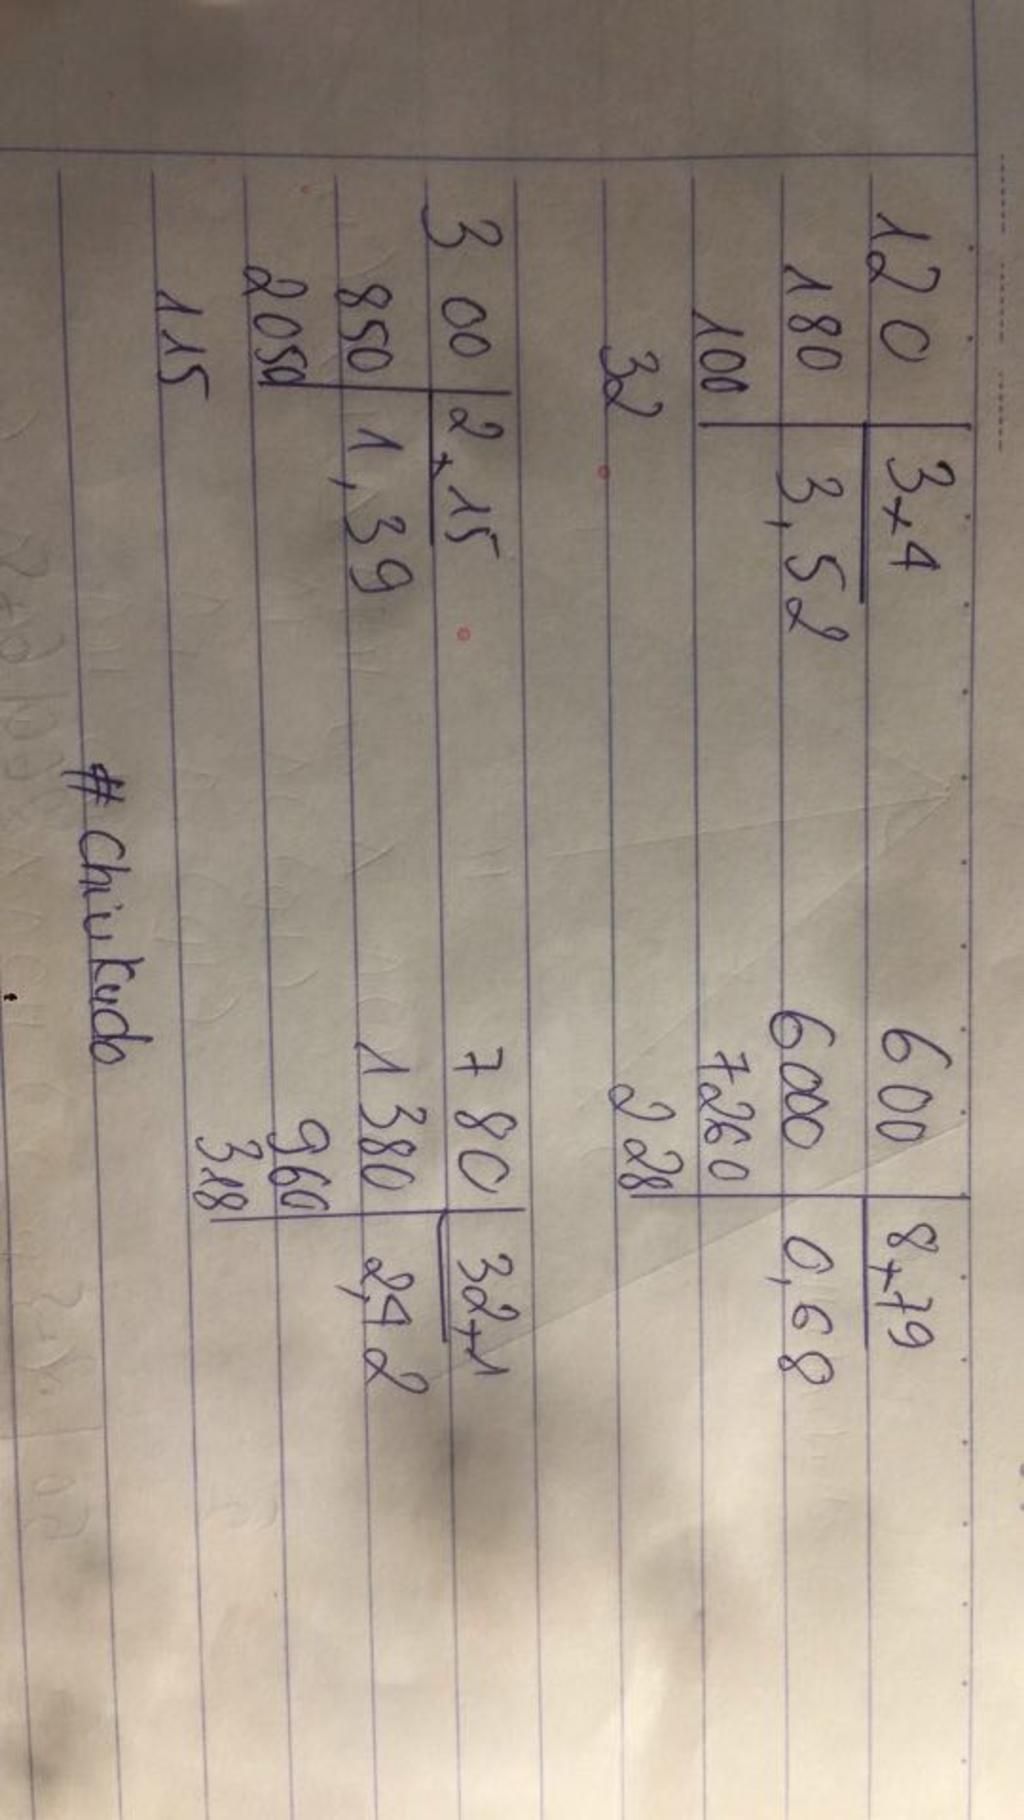 120 3,4 600 8,79
180 3,52 6000 0,68
100 7260
32 228
3 00 2,15 7 80 32,1
850 1,39 1 380 2,42
2050 960
115 318
#chiukudo